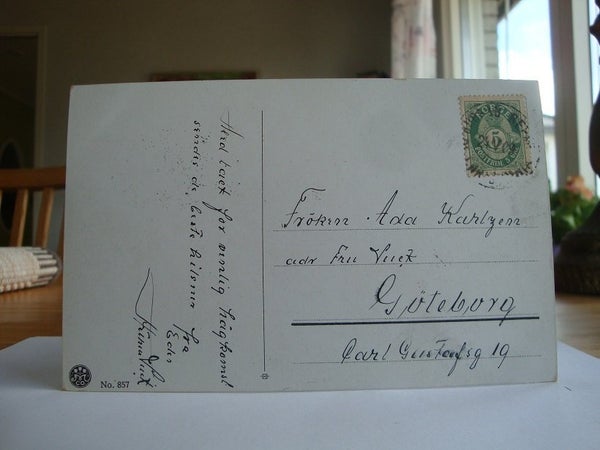 Med takk for venlig hågkomst
sendis de beste hilsner
fra
Eder
No. 857
NORGE
5
Fröken Ada Karlzen
adr Fru Tuet
Göteborg
Carl Gustafsg 19